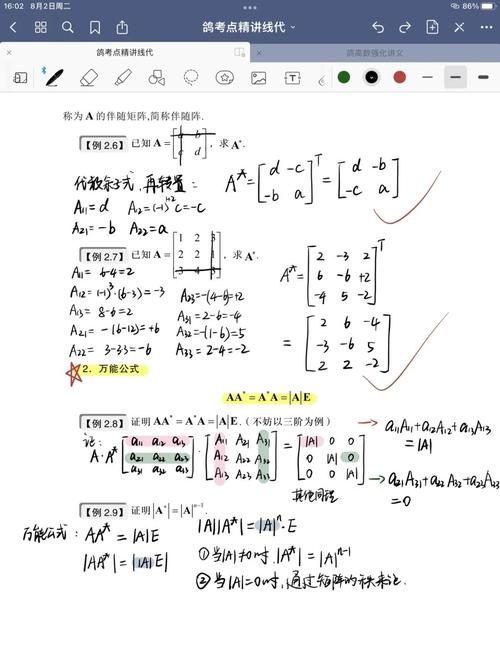 16:02 8月2日周二
86%
鸽考点精讲线代
鸽考点精讲线代
鸽高数强化讲义
称为 A 的伴随矩阵,简称伴随阵.
【例 2.6】 已知 A = [a b; c d], 求 A*.
代数余子式, 再转置:
A* = [d -c; -b a]^T = [d -b; -c a]
A11 = d A12 = (-1)^(1+2) c = -c
A21 = -b A22 = a
【例 2.7】 已知 A = [1 2 3; 2 2 1; 3 4 3], 求 A*.
A11 = 6-4 = 2
A12 = (-1)^3 (6-3) = -3
A13 = 8-6 = 2
A21 = -(6-12) = +6
A22 = 3-3·3 = -6
A23 = -(4-6) = +2
A31 = 2-6 = -4
A32 = -(1-6) = 5
A33 = 2-4 = -2
A* = [2 -3 2; 6 -6 +2; -4 5 -2]^T
= [2 6 -4; -3 -6 5; 2 2 -2]
2. 万能公式
AA* = A*A = |A|E
【例 2.8】 证明 AA* = A*A = |A|E. (不妨以三阶为例)
证:
A·A* [a11 a12 a13; a21 a22 a23; a31 a32 a33] · [A11 A21 A31; A12 A22 A32; A13 A23 A33] = [|A| 0 0; 0 |A| 0; 0 0 |A|]
→ a11A11 + a12A12 + a13A13 = |A|
→ a21A31 + a22A32 + a23A33 = 0
其他同理
【例 2.9】 证明 |A*| = |A|^(n-1).
万能公式: AA* = |A|E
|AA*| = ||A|E|
|A||A*| = |A|^n · E
① 当|A|≠0时, |A*| = |A|^(n-1)
② 当|A|=0时, 通过矩阵的秩来证.